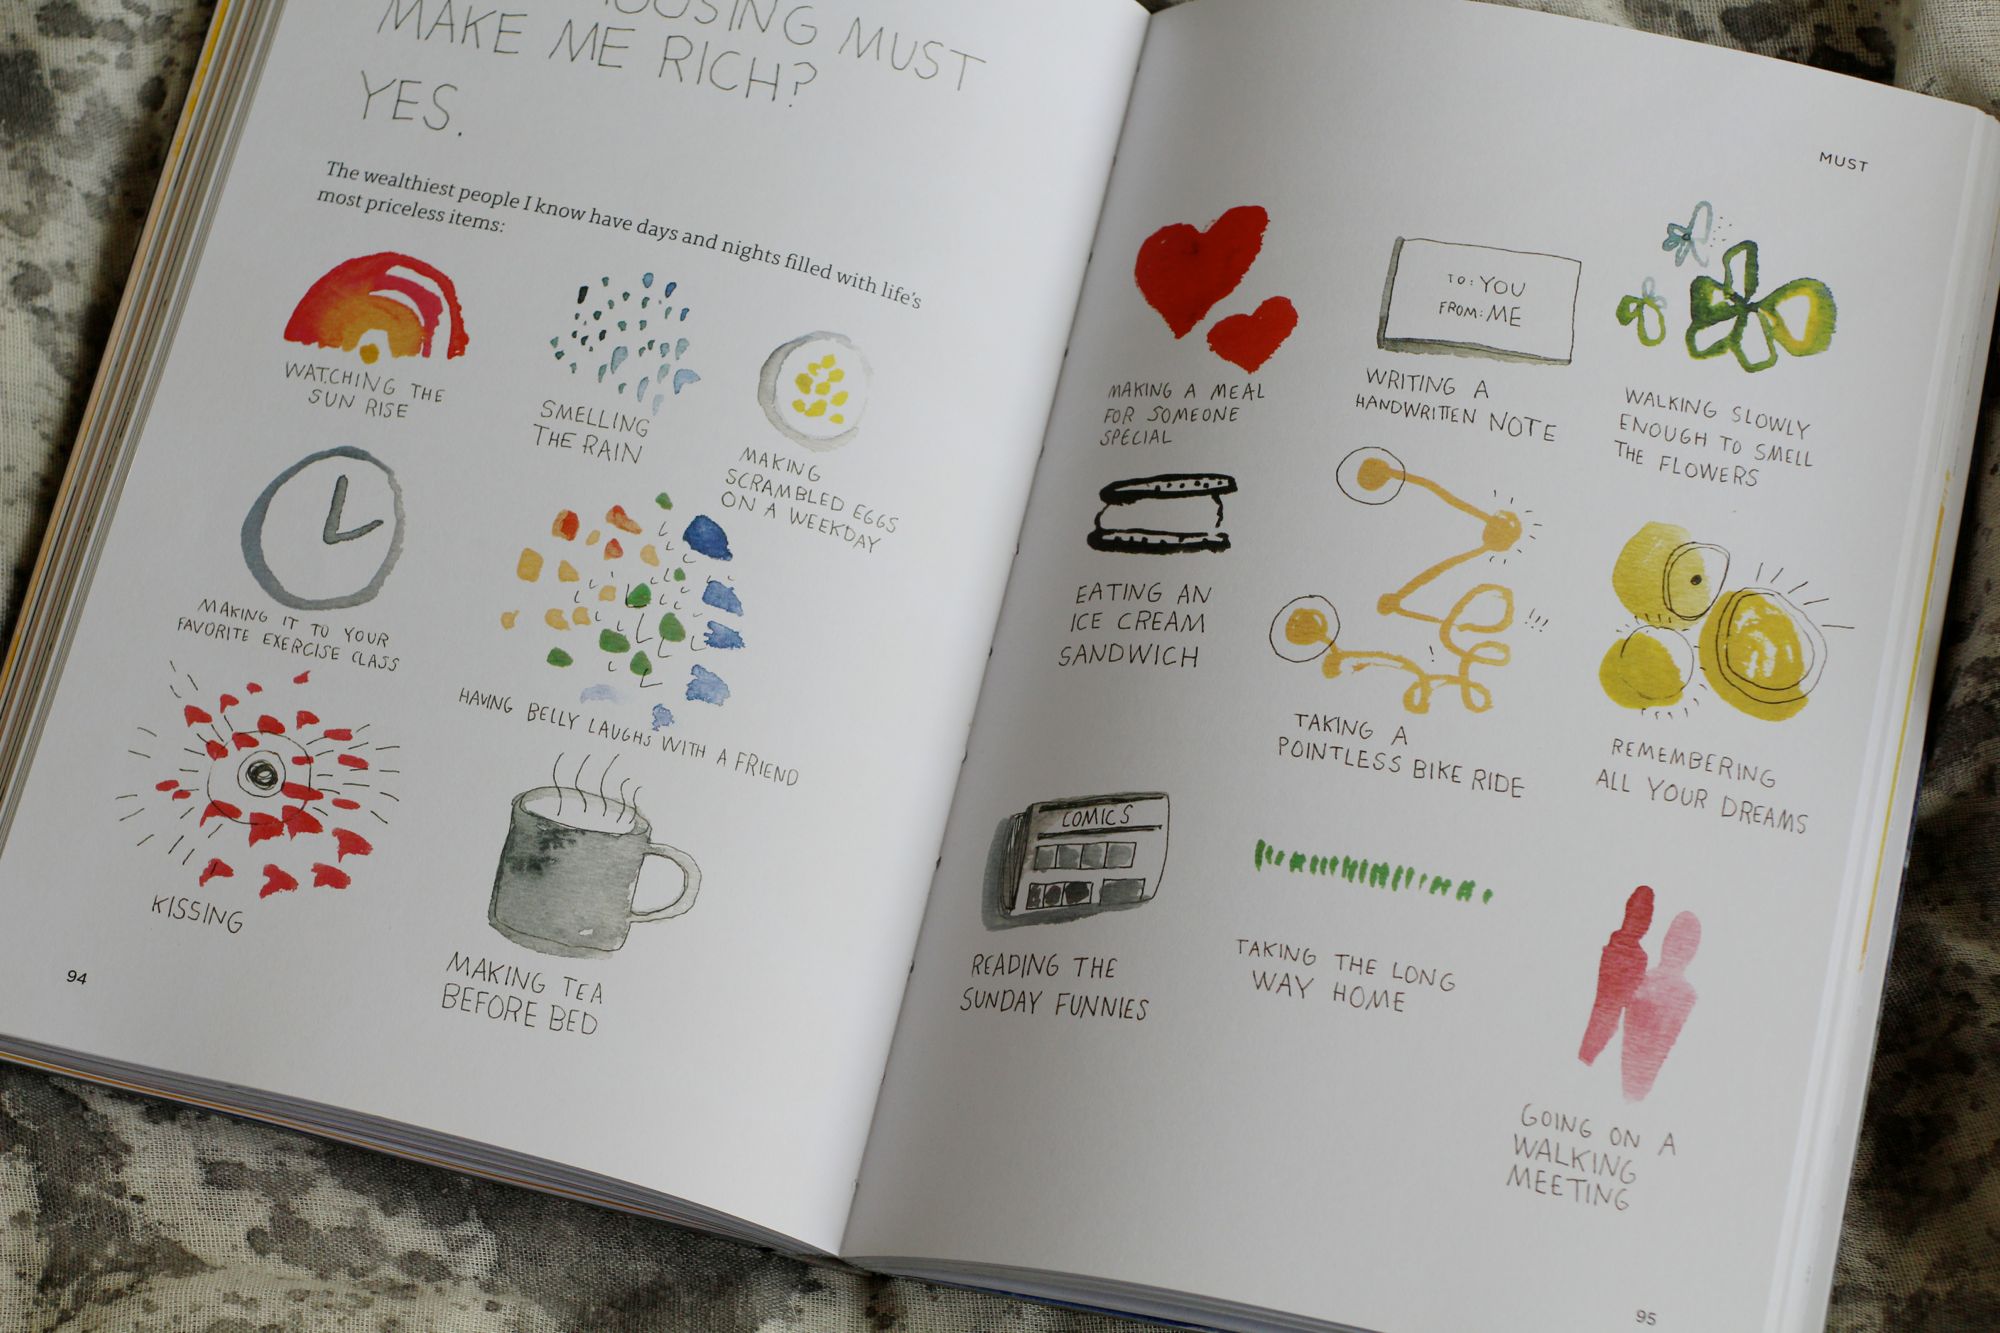 MUST
MAKE ME RICH?
YES.
The wealthiest people I know have days and nights filled with life's
most priceless items:
WATCHING THE
SUN RISE
SMELLING
THE RAIN
MAKING
SCRAMBLED EGGS
ON A WEEKDAY
MAKING IT TO YOUR
FAVORITE EXERCISE CLASS
HAVING BELLY LAUGHS WITH A FRIEND
KISSING
MAKING TEA
BEFORE BED
94
MUST
MAKING A MEAL
FOR SOMEONE
SPECIAL
TO: YOU
FROM: ME
WRITING A
HANDWRITTEN NOTE
WALKING SLOWLY
ENOUGH TO SMELL
THE FLOWERS
EATING AN
ICE CREAM
SANDWICH
TAKING A
POINTLESS BIKE RIDE
REMEMBERING
ALL YOUR DREAMS
COMICS
READING THE
SUNDAY FUNNIES
TAKING THE LONG
WAY HOME
GOING ON A
WALKING
MEETING
95